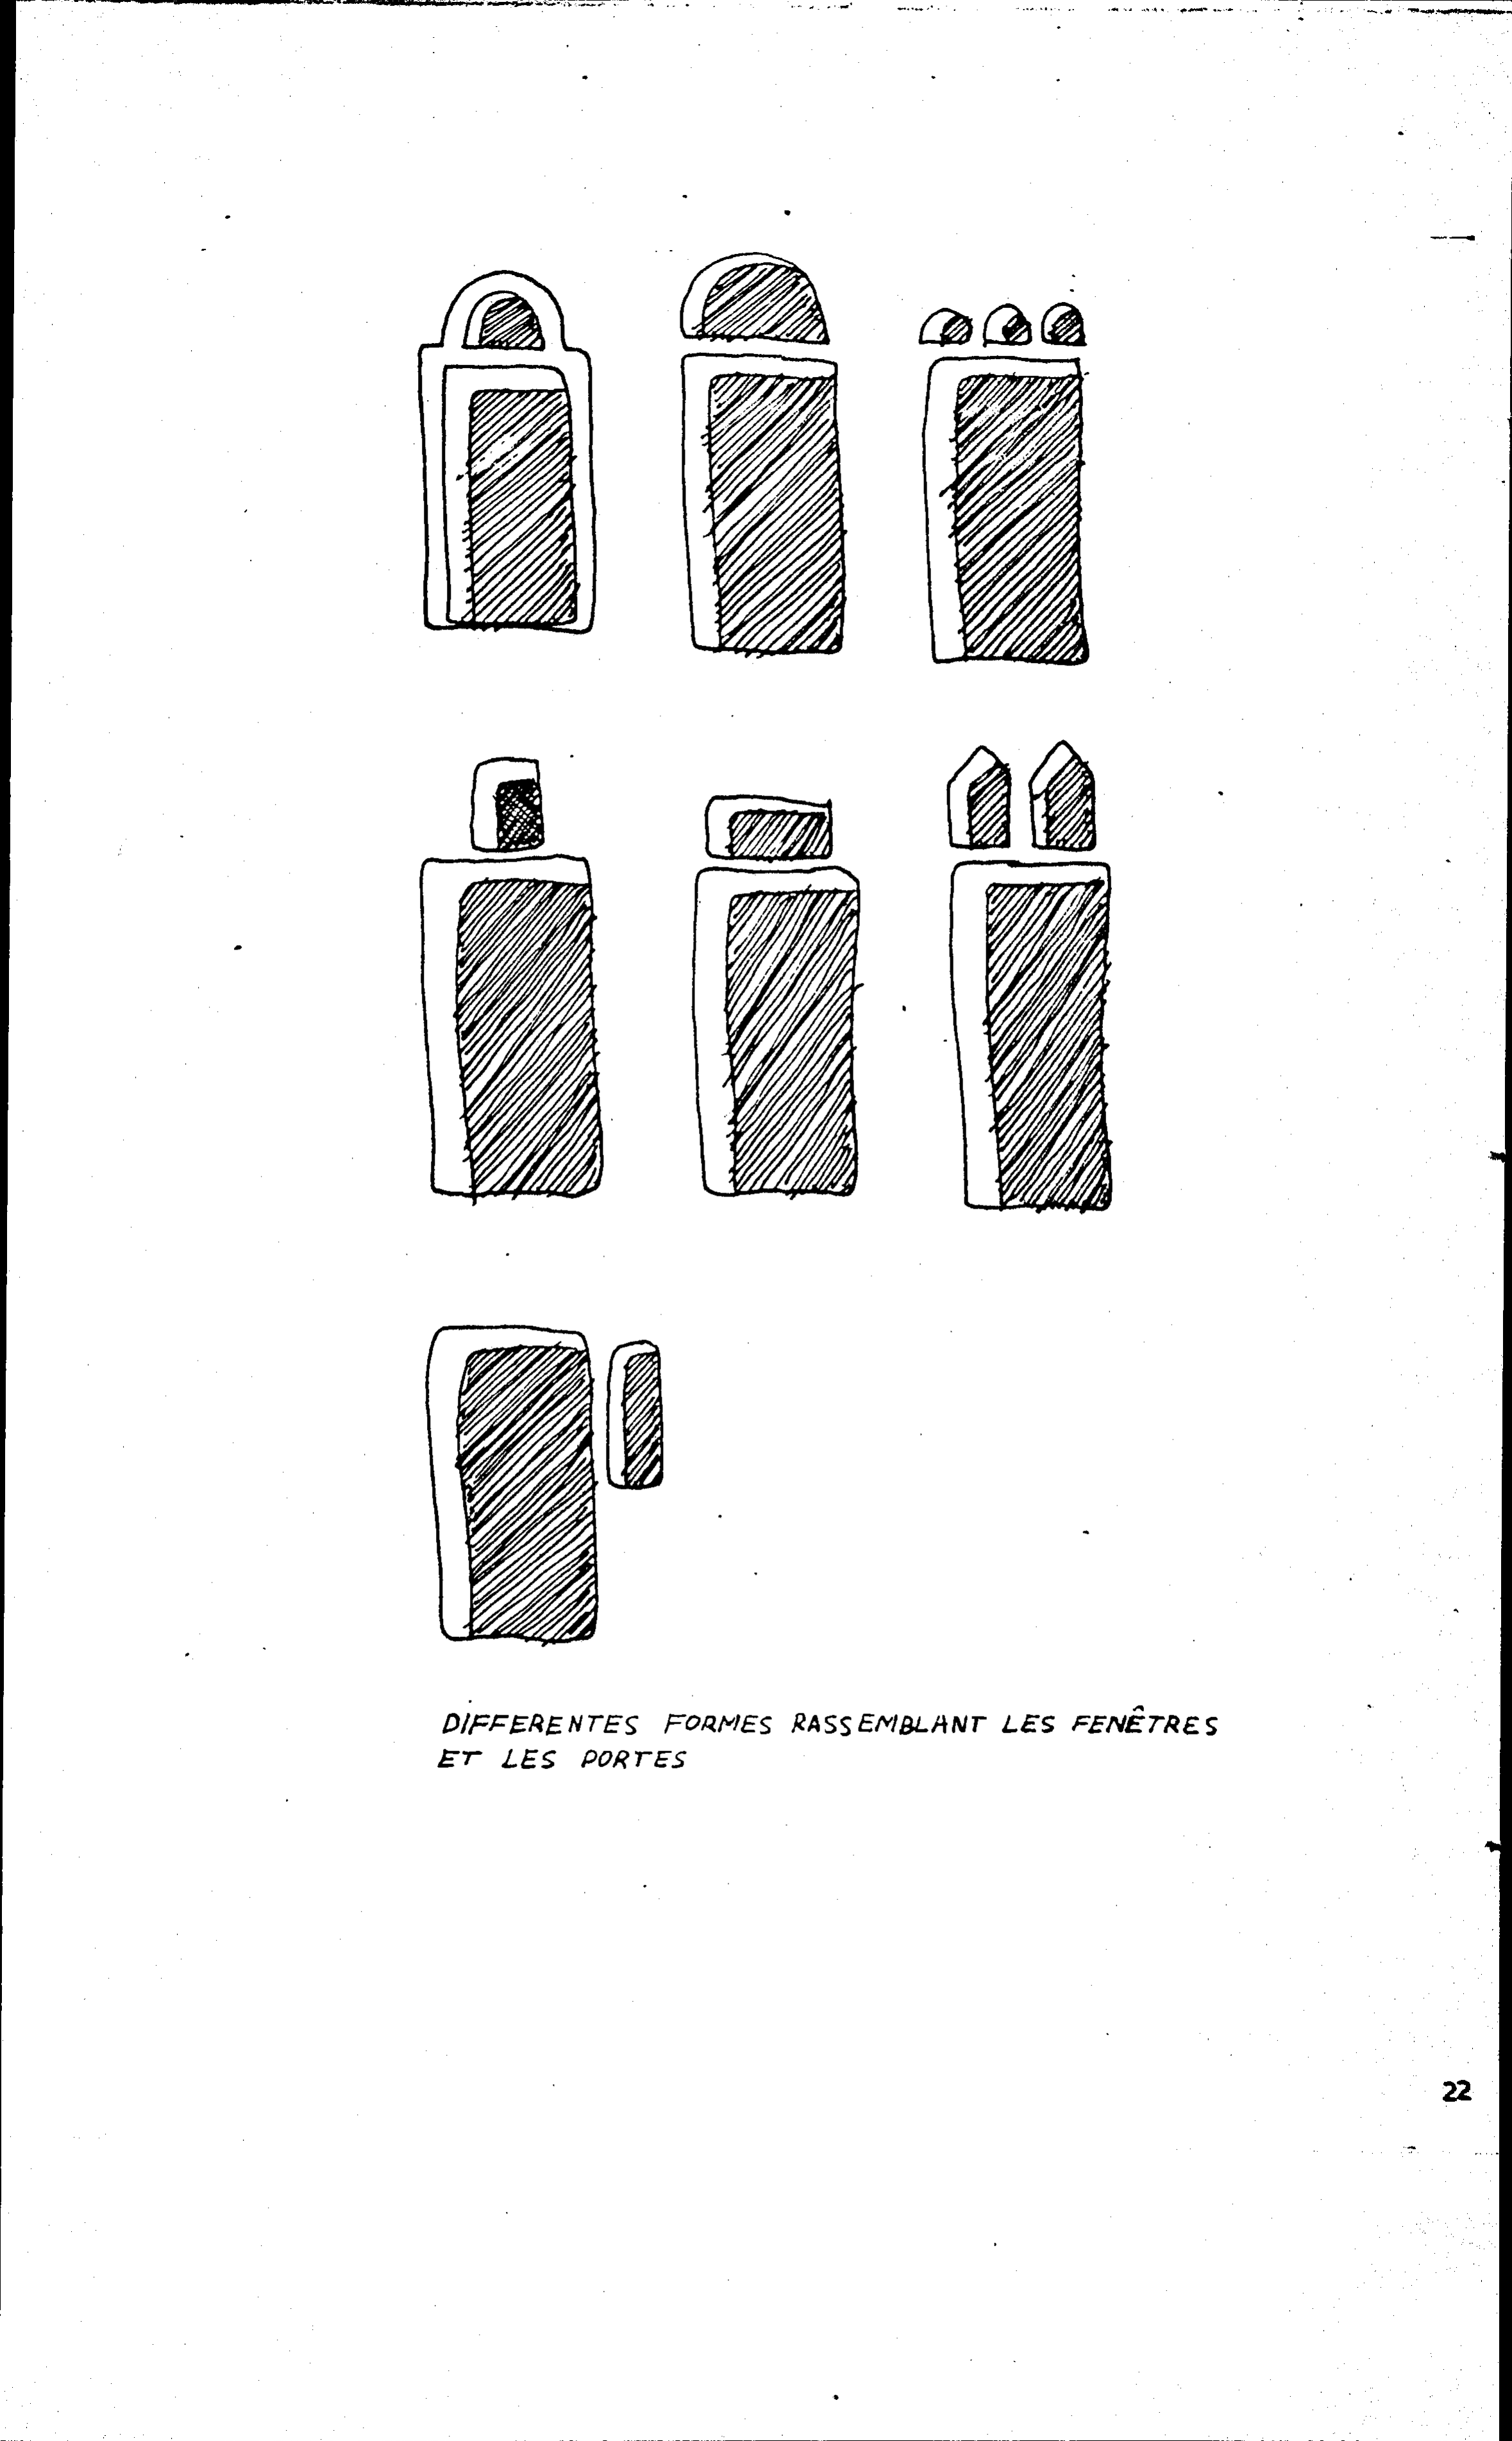 DIFFERENTES FORMES RASSEMBLANT LES FENÊTRES
ET LES PORTES
22